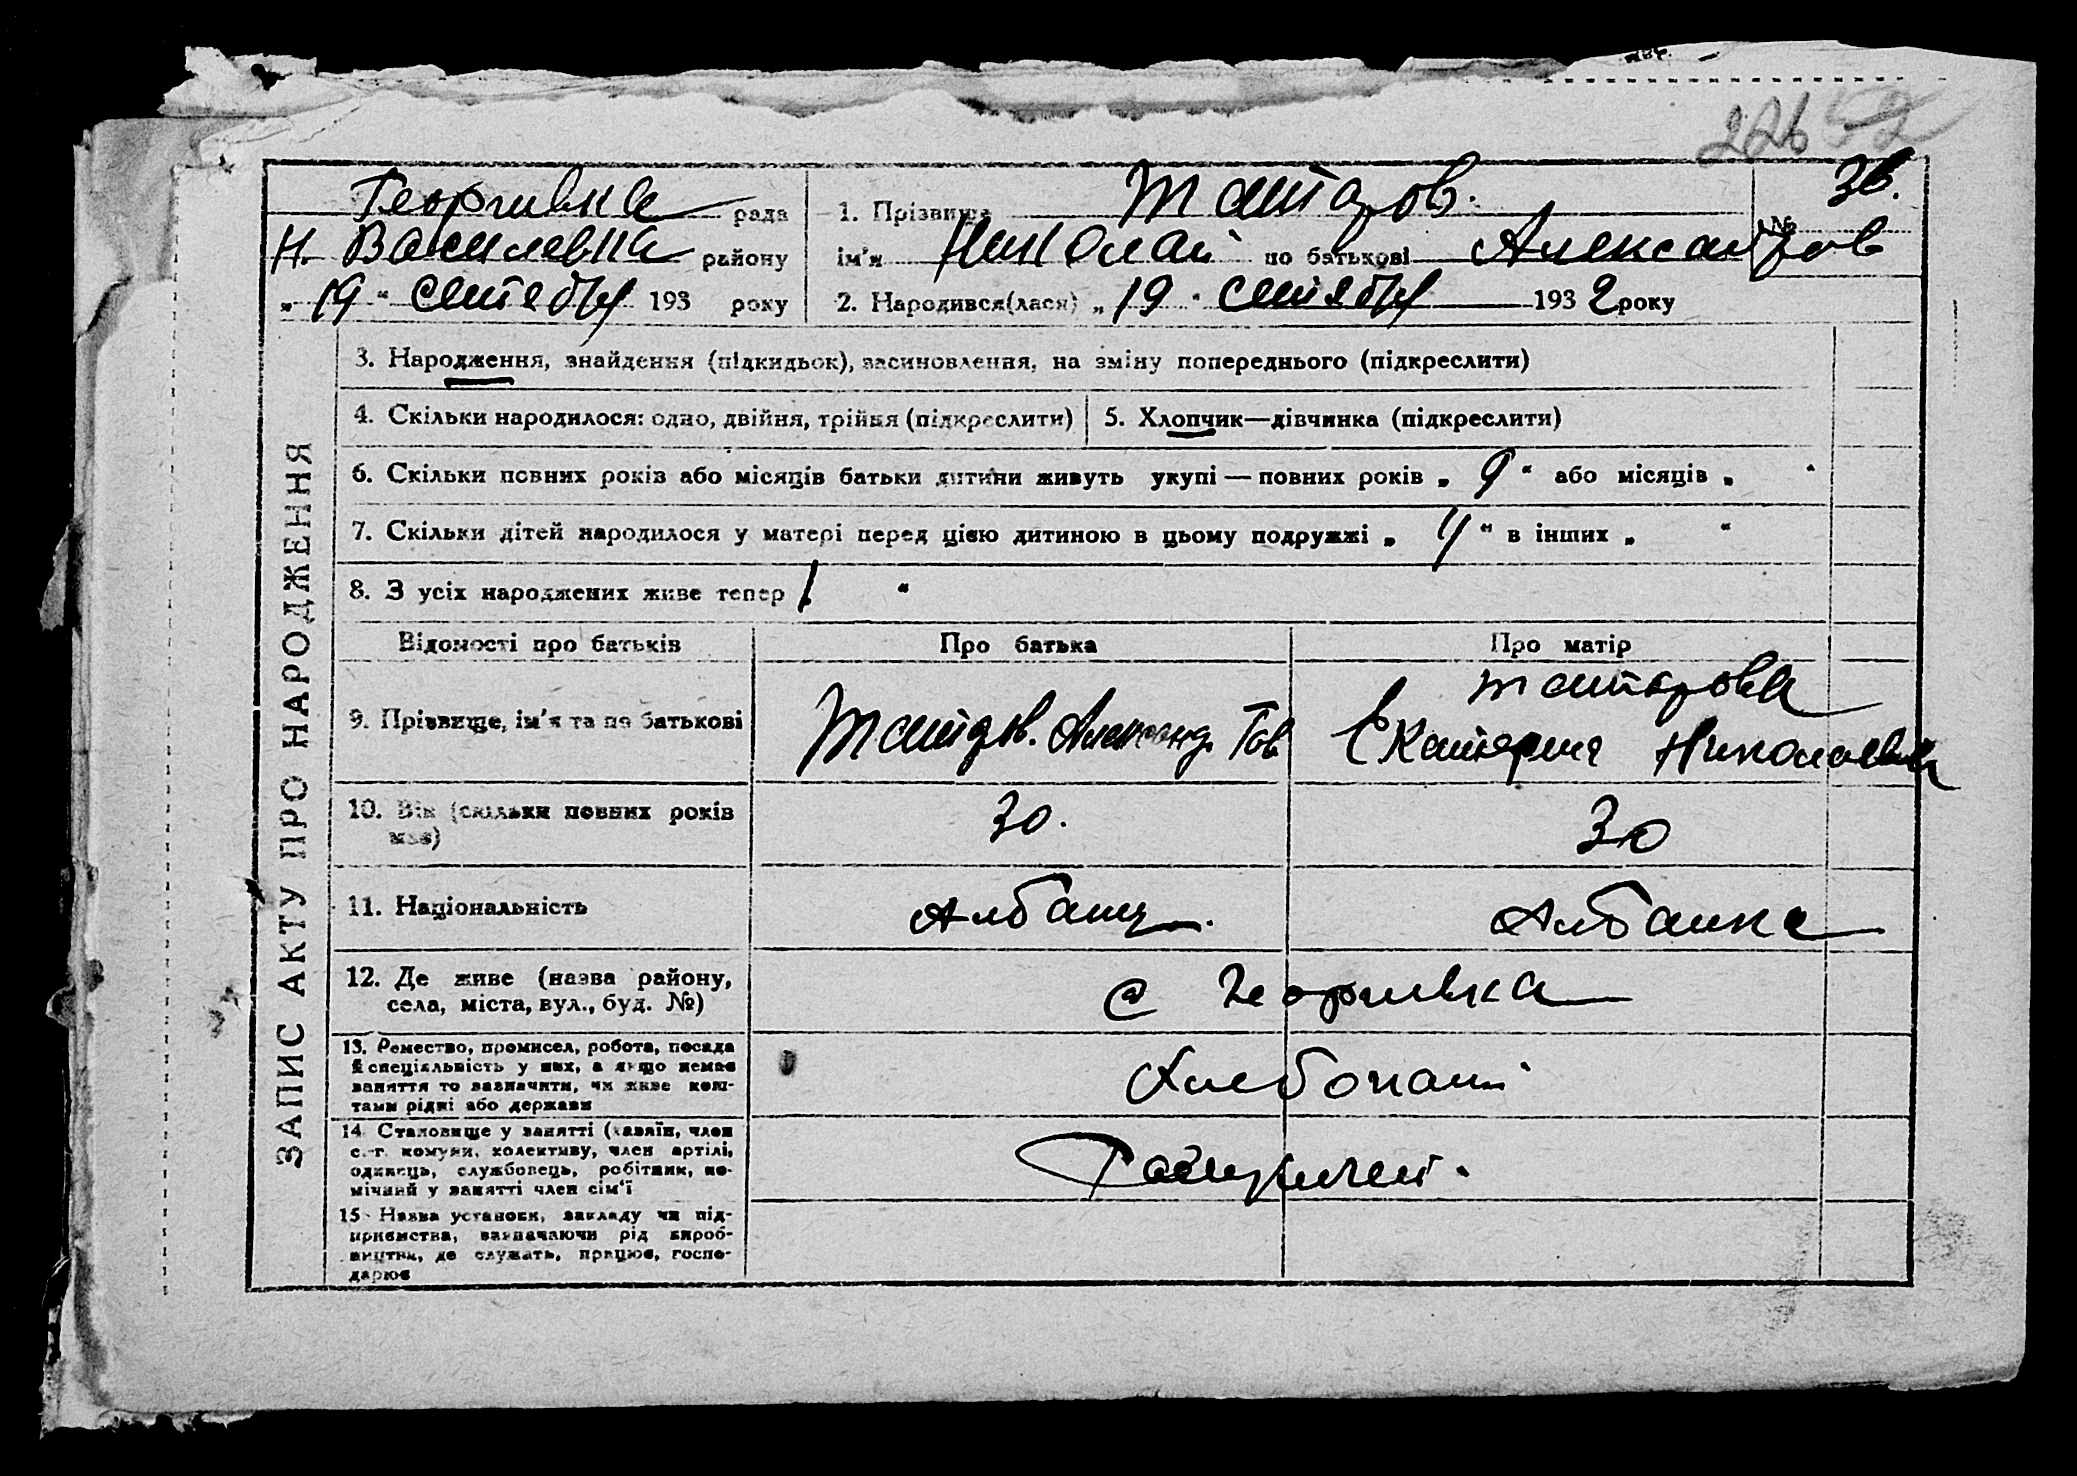 22652
Георгивка рада
Н. Василевка району
„ 19 “ сентебря 193 року
1. Прізвище Татаров.
№ 36.
ім'я Николай по батькові Александров
2. Народився(лася) „ 19 “ сентября 1932 року
ЗАПИС АКТУ ПРО НАРОДЖЕННЯ
3. Народження, знайдення (підкидьок), засиновлення, на зміну попереднього (підкреслити)
4. Скільки народилося: одно, двійня, трійня (підкреслити)
5. Хлопчик—дівчинка (підкреслити)
6. Скільки повних років або місяців батьки дитини живуть укупі — повних років „ 9 “ або місяців „ “
7. Скільки дітей народилося у матері перед цією дитиною в цьому подружжі „ 4 “ в інших „ “
8. З усіх народжених живе тепер „ “
Відомості про батьків
Про батька
Про матір
9. Прізвище, ім'я та по батькові
Татаров. Александ.
Татарова
Екатерина Николаевна
10. Вік (скільки повних років
має)
30.
30
11. Національність
Албанц.
Албанка
12. Де живе (назва району,
села, міста, вул., буд. №)
с Георгивка
13. Ремество, промисел, робота, посада
й спеціяльність у них, а якщо немає
заняття то зазначити, чи живе кош-
тами рідні або держави
Хлебопаш
14. Становище у занятті (хазяїн, член
с.-г. комуни, колективу, член артілі,
одинець, службовець, робітник, по-
мічний у занятті член сім'ї
15. Назва установи, закладу чи під-
приємства, зазначаючи рід вироб-
ництва, де служать, працює, госпо-
дарює